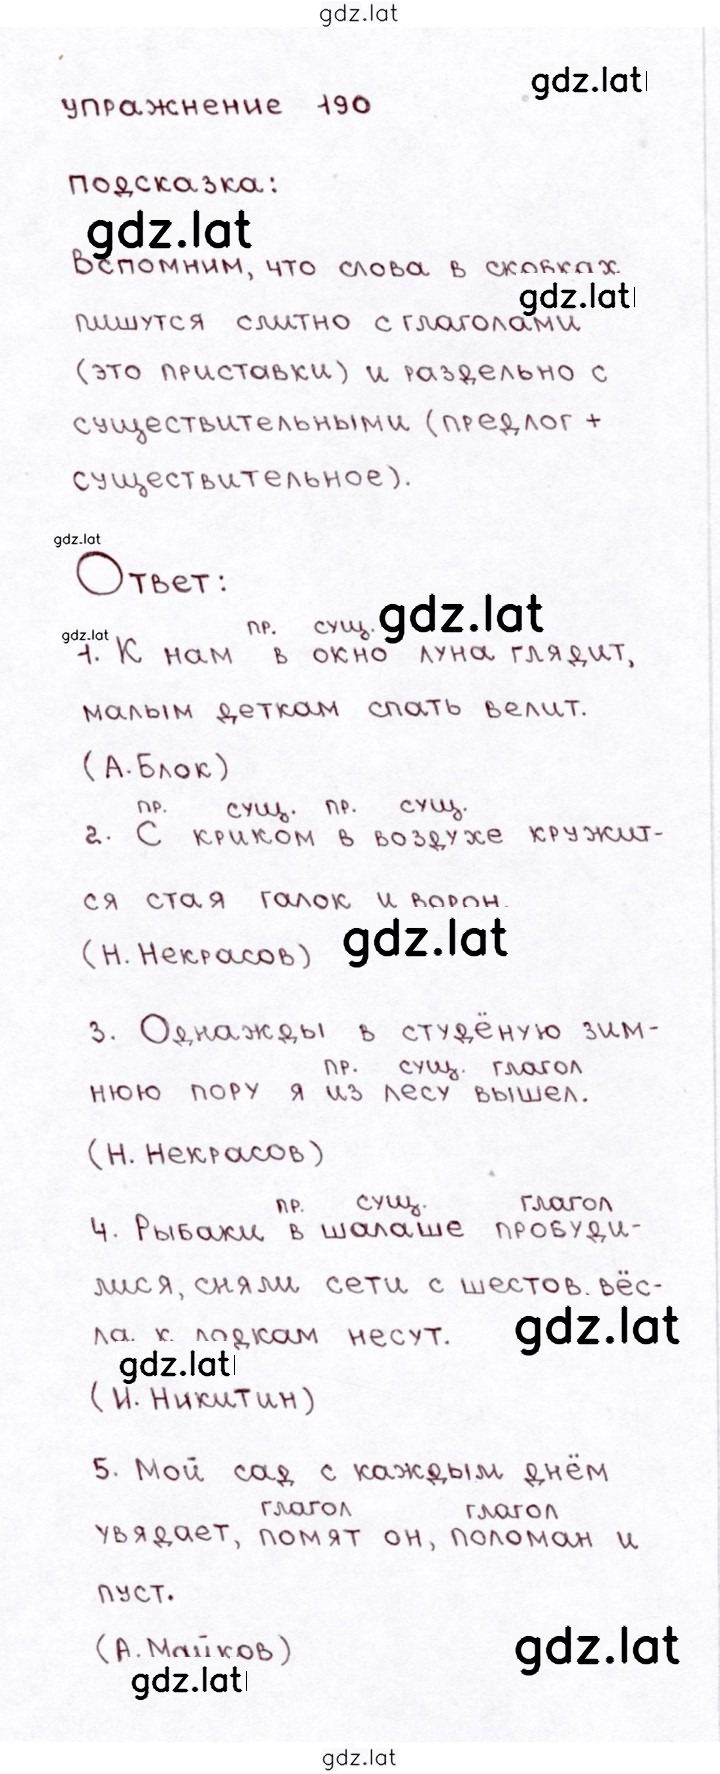 gdz.lat
gdz.lat
упражнение 190
подсказка:
gdz.lat
Вспомним, что слова в скобках
gdz.lat
пишутся слитно с глаголами
(это приставки) и раздельно с
существительными (предлог +
существительное).
gdz.lat
Ответ:
gdz.lat
пр. сущ.
gdz.lat
1. К нам в окно луна глядит,
малым деткам спать велит.
(А. Блок)
пр. сущ. пр. сущ.
2. С криком в воздухе кружит-
ся стая галок и ворон.
(Н. Некрасов)
gdz.lat
3. Однажды в студёную зим-
пр. сущ. глагол
нюю пору я из лесу вышел.
(Н. Некрасов)
пр. сущ. глагол
4. Рыбаки в шалаше пробуди-
лися, сняли сети с шестов. вёс-
ла. к лодкам несут.
gdz.lat
gdz.lat
(И. Никитин)
5. Мой сад с каждым днём
глагол глагол
увядает, помят он, поломан и
пуст.
(А. Майков)
gdz.lat
gdz.lat
gdz.lat